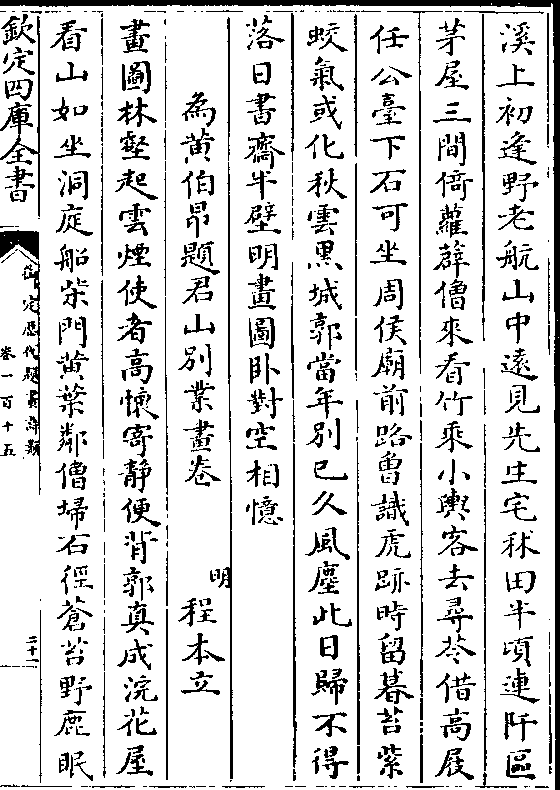 溪上初逢野老航山中遠見先生宅秫田半頃連阡區
茅屋三間倚蘿薜僧來看竹乘小輿客去尋苓借高屐
任公臺下石可坐周侯廟前路曾識虎跡時留暮苔紫
蛟氣或化秋雲黑城郭當年別已久風塵此日歸不得
落日書齋半壁明畫圖卧對空相憶
為黃伯昂題君山別業畫卷 明 程本立
畫圖林壑起雲煙使者高懷寄靜便背郭真成浣花屋
看山如坐洞庭船柴門黃葉鄰僧埽石徑蒼苔野鹿眠
欽定四庫全書
御定歴代題畫詩類
卷一百十五
二十一